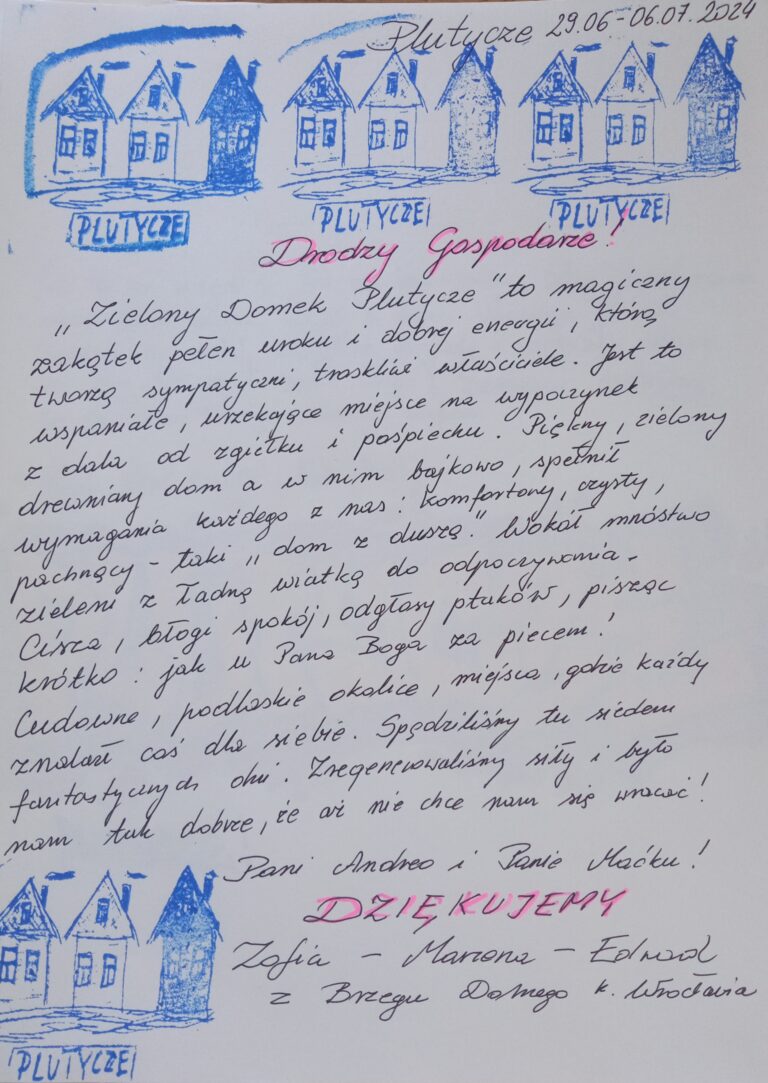 Plutycze 29.06-06.07.2024
PLUTYCZE PLUTYCZE PLUTYCZE
Drodzy Gospodarze!
„Zielony Domek Plutycze" to magiczny
zakątek pełen uroku i dobrej energii, którą
tworzą sympatyczni, troskliwi właściciele. Jest to
wspaniałe, urzekające miejsce na wypoczynek
z dala od zgiełku i pośpiechu. Piękny, zielony
drewniany dom a w nim bajkowo, spełnił
wymagania każdego z nas: komfortowy, czysty,
pachnący - taki „dom z duszą." Wokół mnóstwo
zieleni z ładną wiatką do odpoczywania.
Cisza, błogi spokój, odgłosy ptaków, pisząc
krótko: jak u Pana Boga za piecem!
Cudowne, podlaskie okolice, miejsca, gdzie każdy
znalazł coś dla siebie. Spędziliśmy tu siedem
fantastycznych dni. Zregenerowaliśmy siły i było
nam tak dobrze, że aż nie chce nam się wracać!
Pani Andreo i Panie Maćku!
DZIĘKUJEMY
Zofia - Marzena - Edward
z Brzegu Dolnego k. Wrocławia
PLUTYCZE